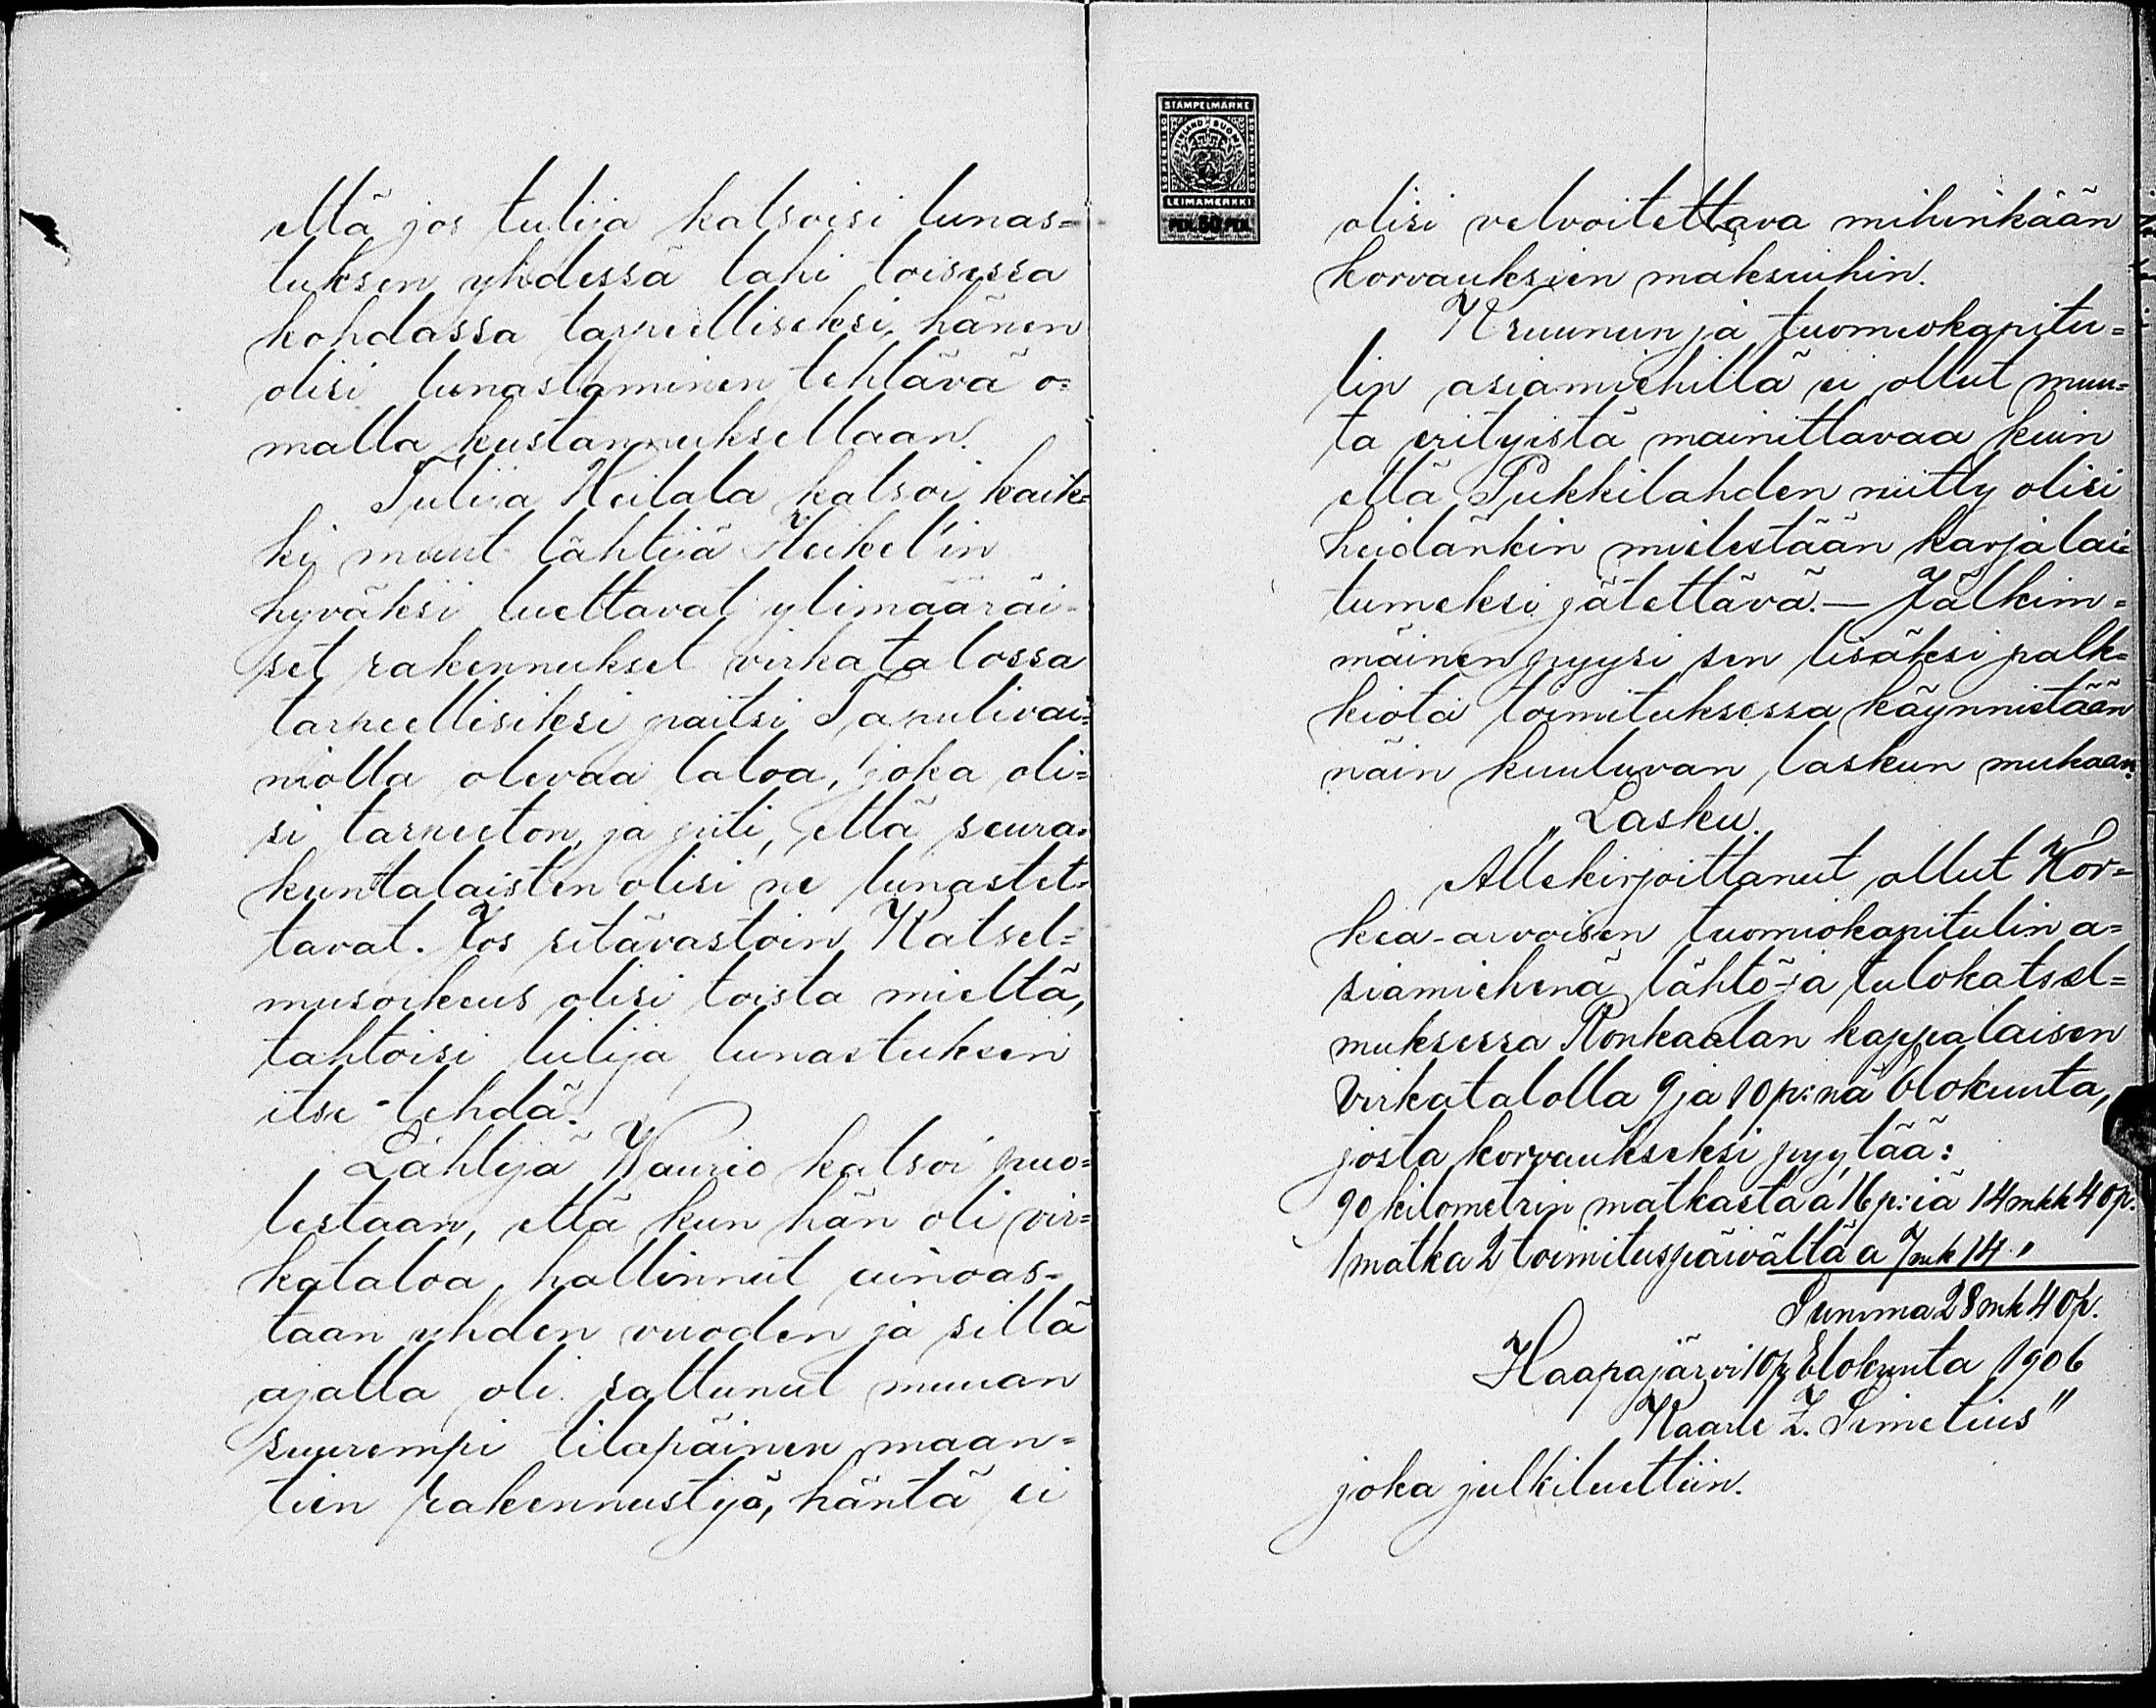 että jos tulija katsoisi lunas=
tuksen yhdessä tahi toisessa
kohdassa tarpeelliseksi, hänen
olisi lunastaminen tehtävä o=
malla kustannuksellaan.
Tulija Heilala katsoi kaik=
ki muut lähtijä Heikel'in
hyväksi luettavat ylimääräi-
set rakennukset virkatalossa
tarpeellisiksi paitsi Tapulivai=
niolla olevaa taloa, joka oli=
si tarpeeton, ja piti, että seura=
kuntalaisten olisi ne lunastet=
tavat. Jos sitävastoin Katsel=
musoikeus olisi toista mieltä,
tahtoisi tulija lunastuksen
itse tehdä.
Lähtijä Waurio katsoi puo=
lestaan, että kun hän oli vir=
kataloa hallinnut ainoas-
taan yhden vuoden ja sillä
ajalla oli sattunut muuan
suurempi tilapäinen maan=
tien rakennustyö, häntä ei
STÄMPELMÄRKE
FINLAND SUOMI
LEIMAMERKKI
PEN. 50 PEN.
olisi velvoitettava mihinkään
korvauksien maksuihin.
Kruunun ja tuomiokapitu=
lin asiamiehillä ei ollut muu=
ta erityistä mainittavaa kuin
että Pukkilahden niitty olisi
heidänkin mielestään karjalai=
tumeksi jätettävä. — Jälkim=
mäinen pyysi sen lisäksi palk=
kiota toimituksessa käynnistään
näin kuuluvan laskun mukaan:
„Lasku.
Allekirjoittanut ollut Kor=
kea-arvoisen tuomiokapitulin a=
siamiehenä lähtö- ja tulokatsel=
muksessa Ronkaalan kappalaisen
virkatalolla 9 ja 10 p:nä Elokuuta,
josta korvaukseksi pyytää:
90 kilometrin matkasta a 16 p:iä 14 mkk 40 p.
1 matka 2 toimituspäivältä a 7 mk 14 "
Summa 28 mk 40 p.
Haapajärvi 10 p Elokuuta 1906
Kaarle Z. Simelius"
joka julkiluettiin.